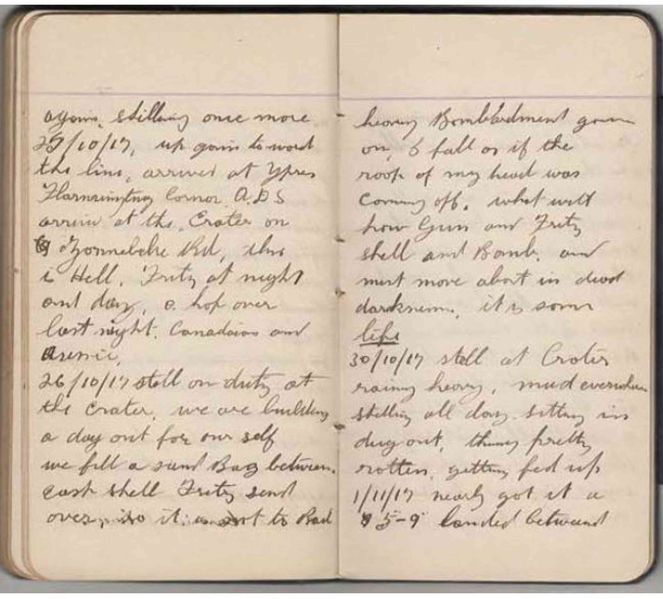 again, shilling once more
25/10/17, up gains to word
the line, arrived at Ypres
Corner A.D.S
arrive at the Crater on
Zonnebeke Rd, this
is Hell, Fritz at night
and day, a hop over
last night. Canadians and
26/10/17 still on duty at
the Crater, we are building
a day out for our self
we fill a sand Bag between
each shell Fritz send
over, so it is not to Bad
heavy Bombbardment goin
on, I fall as if the
roof of my head was
coming off, what with
how Gun and Fritz
shell and Bomb, and
must move about in dead
darkness, it is some
life
30/10/17 still at Crater
raining heavy, mud everwhere
shelling all day sitting in
dug out, things pretty
rotten, getting fed up
1/11/17 nearly got it a
5-9 landed between